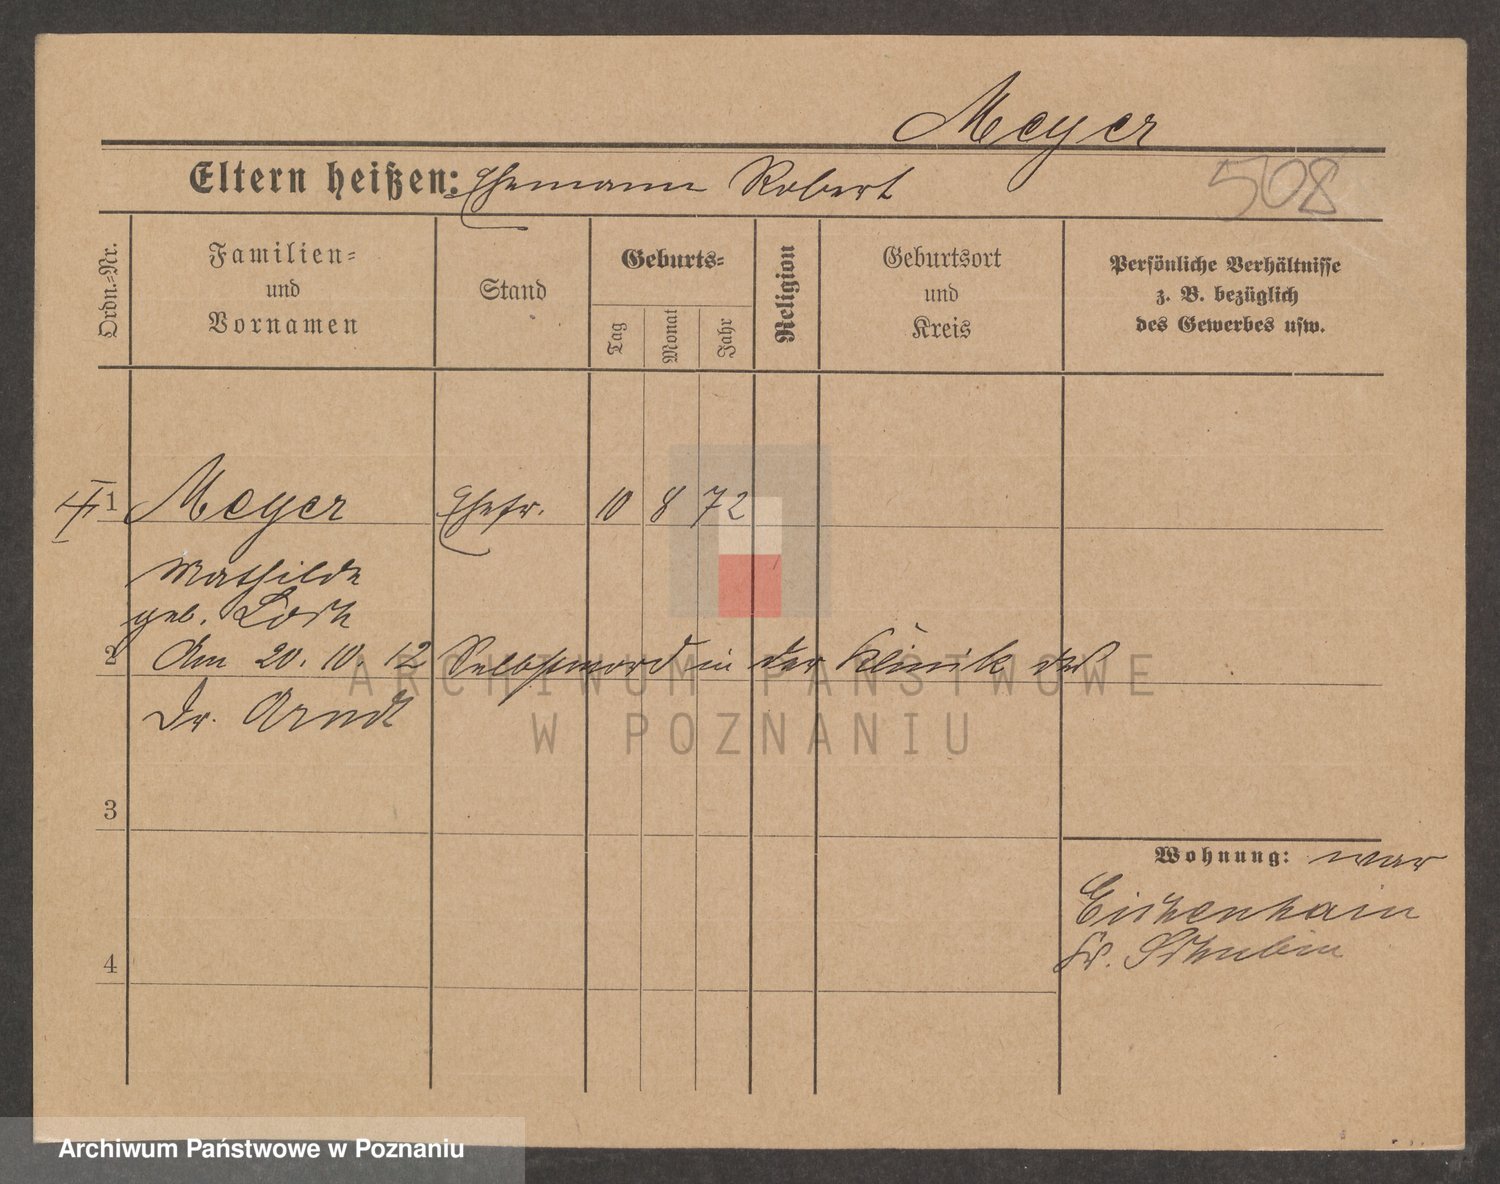 Meyer
Eltern heißen: Ehemann Robert
508
Ordn.=Nr.
Familien=
und
Vornamen
Stand
Geburts=
Tag
Monat
Jahr
Religion
Geburtsort
und
Kreis
Persönliche Verhältnisse
z. B. bezüglich
des Gewerbes usw.
1 Meyer Ehefr. 10 8 72
Mathilde
geb.
2 Am 20. 10. 12 Selbstmord in der Klinik des
Dr. Arndt
ARCHIWUM PAŃSTWOWE
W POZNANIU
3
Wohnung: war
Eichenhain
Kr. Schubin
4
Archiwum Państwowe w Poznaniu